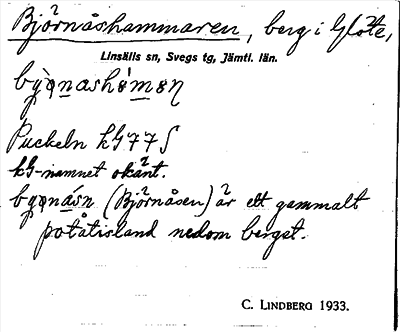 Björnåshammaren, berg i Glöte,
Linsälls sn, Svegs tg, Jämtl. län.
Puckeln kG 77 S
kG-namnet okänt.
(Björnåsen) är ett gammalt
potåtisland nedom berget.
C. LINDBERG 1933.